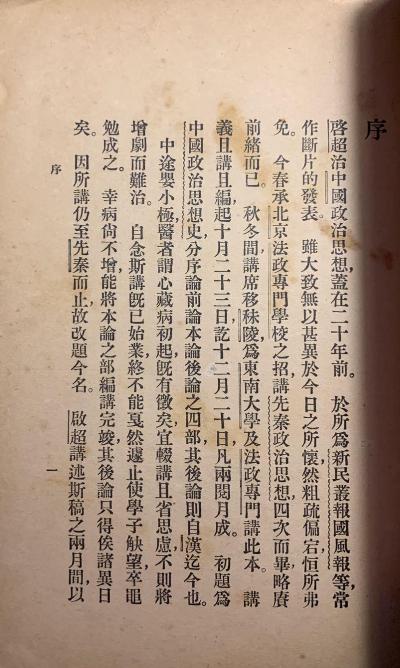 序
啓超治中國政治思想，蓋在二十年前。於所爲新民叢報國風報等，常
作斷片的發表。雖大致無以甚異於今日之所懷，然粗疏偏宕，恒所弗
免。今春承北京法政專門學校之招，講先秦政治思想，四次而畢，略賡
前緒而已。秋冬間，講席移秣陵，爲東南大學及法政專門講此本。講
義且講且編，起十月二十三日，訖十二月二十日，凡兩閱月成。初題爲
中國政治思想史，分序論前論本論後論之四部，其後論則自漢迄今也。
中途嬰小極，醫者謂心藏病初起，旣有徵矣，宜輟講且省思慮，不則將
增劇而難治。自念斯講旣已始業，終不能戛然遽止，使學子觖望，卒黽
勉成之。幸病尙不增，能將本論之部編講完竣，其後論只得俟諸異日
矣。因所講仍至先秦而止，故改題今名。啟超講述斯稿之兩月間，以
序
一